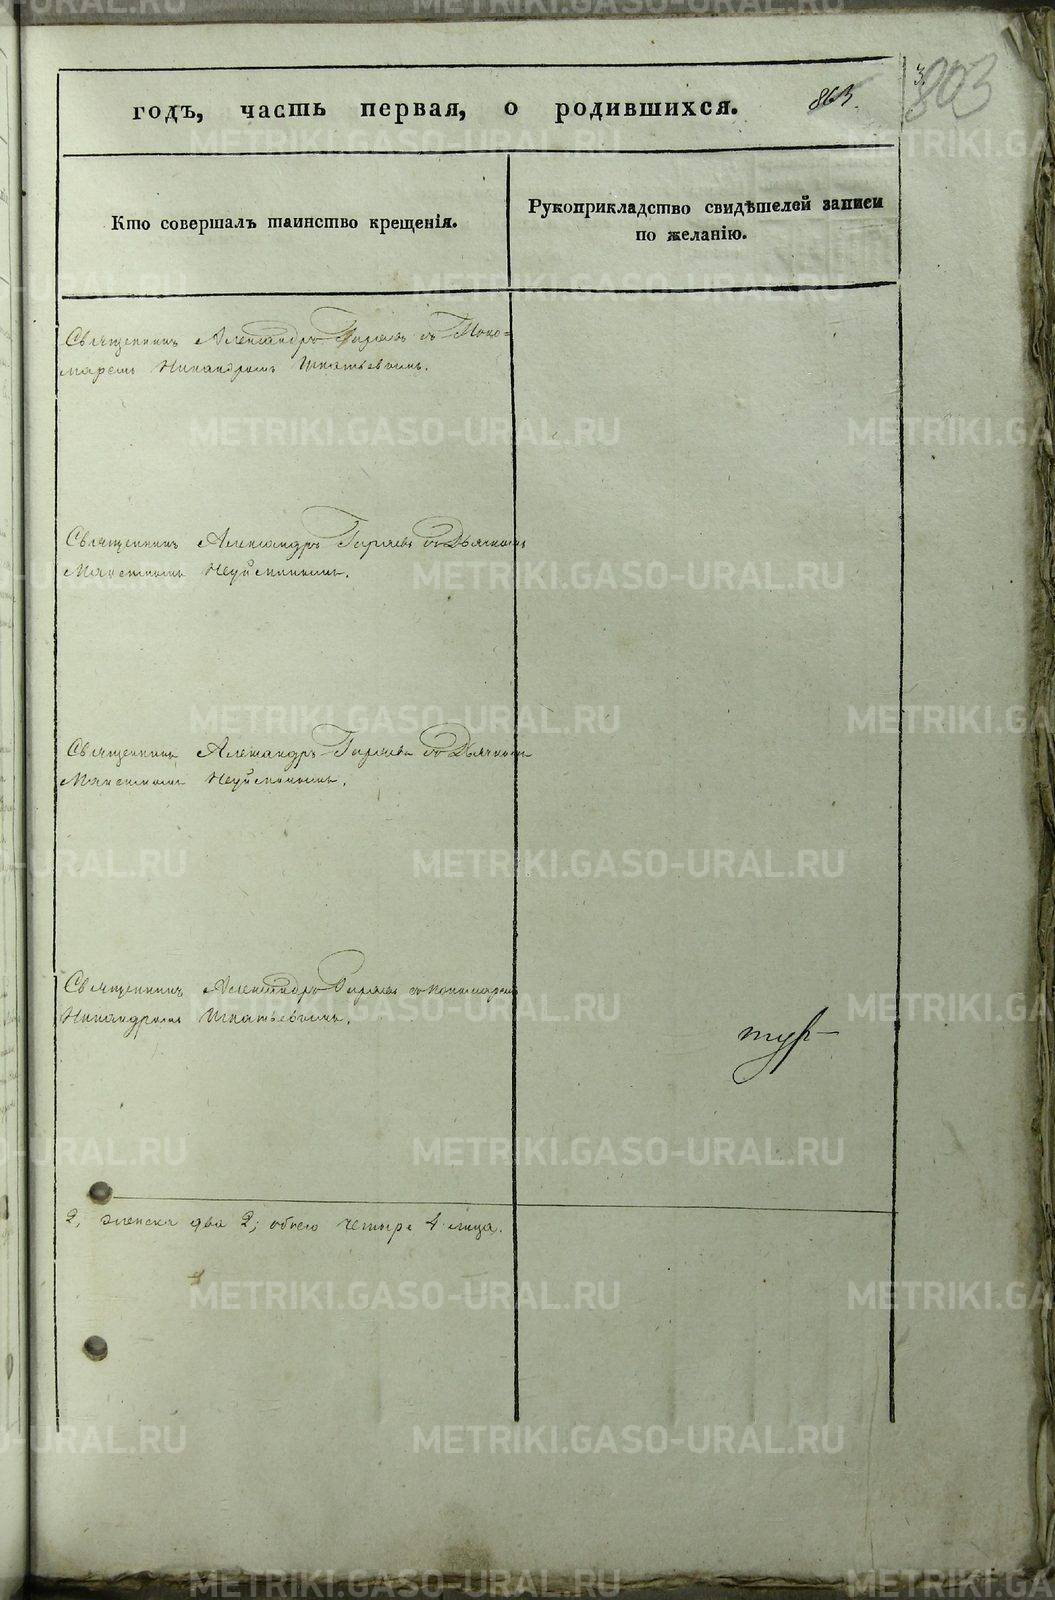 годъ, часть первая, о родившихся.
863.
3.
803
Кто совершалъ таинство крещенія.
Рукоприкладство свидѣтелей записи
по желанію.
Священникъ Александръ Гиряевъ съ Поно=
маремъ Никандромъ Игнатьевымъ.
Священникъ Александръ Гиряевъ съ Дьячкомъ
Неуйминымъ.
Священникъ Александръ Гиряевъ съ Дьячкомъ
Неуйминымъ.
Священникъ Александръ Гиряевъ съ пономаремъ
Никандромъ Игнатьевымъ.
2, женска два 2; обоего четыре 4 лица.
METRIKI.GASO-URAL.RU